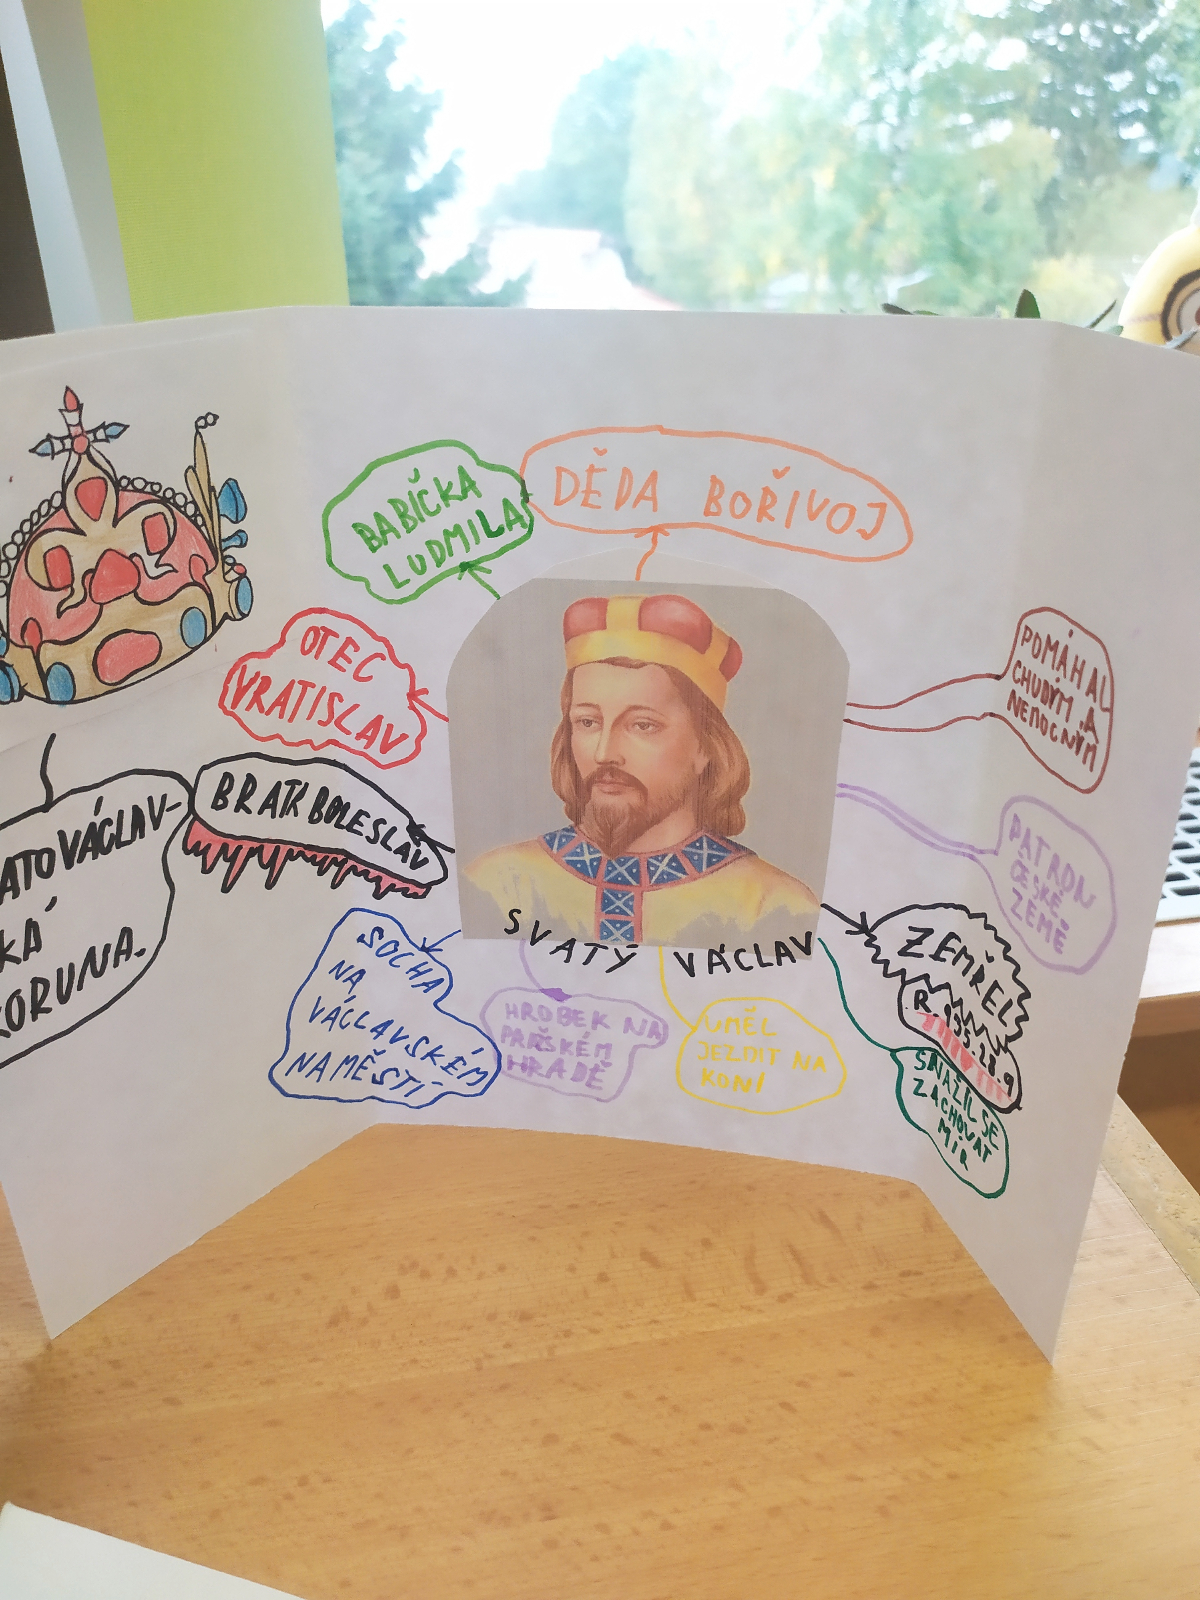 BABIČKA
LUDMILA
DĚDA BOŘIVOJ
OTEC
VRATISLAV
BRATR BOLESLAV
ATOVÁCLAV-
KÁ
KORUNA.
SOCHA
NA
VÁCLAVSKÉM
NAMĚSTÍ
SVATÝ VÁCLAV
HROBEK NA
PRAŽSKÉM
HRADĚ
UMĚL
JEZDIT NA
KONI
POMÁHAL
CHUDÝM A
NEMOCNÝM
PATRON
ČESKÉ
ZEMĚ
ZEMŘEL
R. 935.28.9
SNAŽIL SE
ZACHOVAT
MÍR